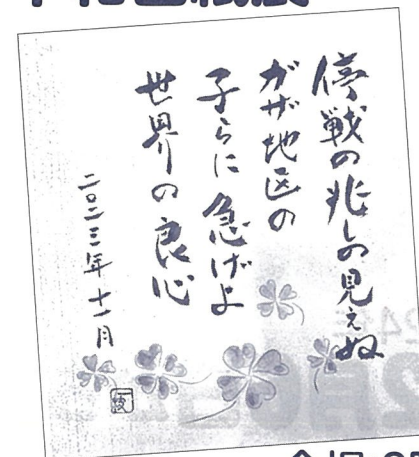 停戦の兆しの見えぬ
ガザ地区の
子らに急げよ
世界の良心
二〇二三年十一月